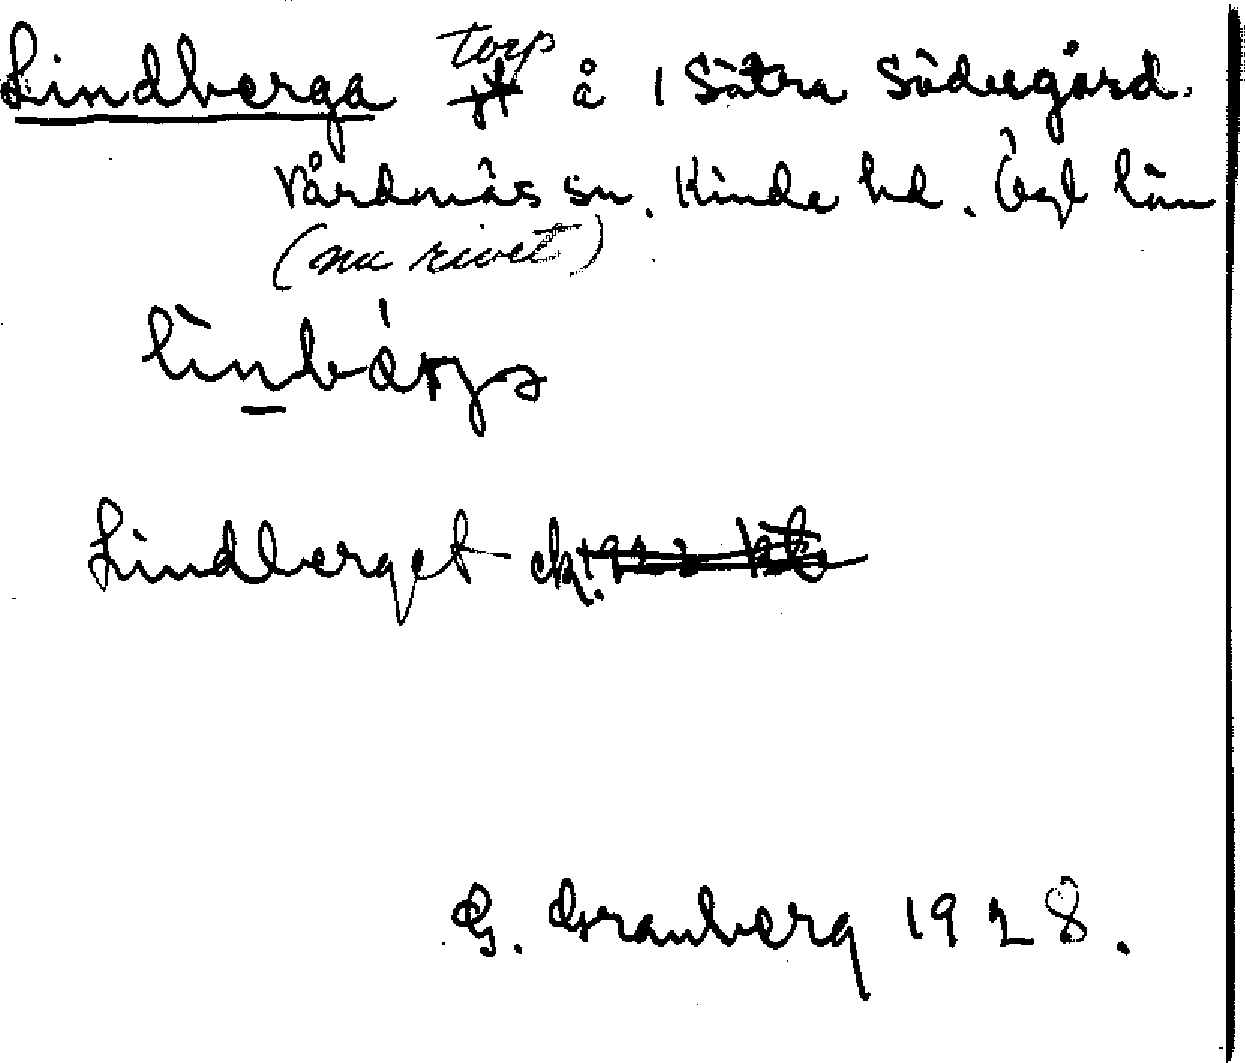 Lindberga torp å 1 Sätra Södergård.
Vårdnäs sn. Kinda hd. Ögl län
(nu rivet)
Lindberget ek.
G. Granberg 1928.